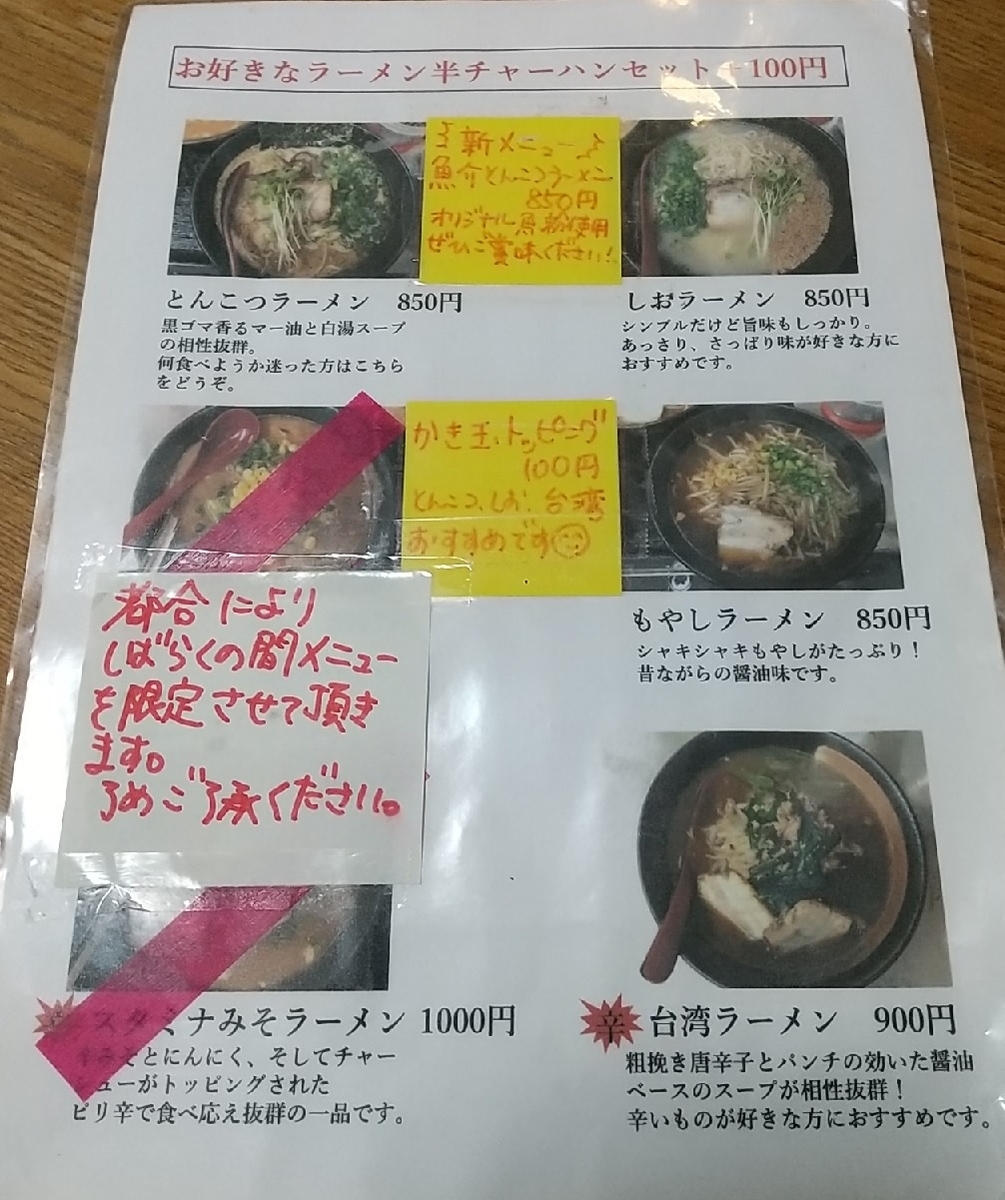 お好きなラーメン半チャーハンセット+100円
新メニュー
魚介とんこつラーメン
850円
オリジナル魚粉使用
ぜひご賞味ください!
とんこつラーメン 850円
黒ゴマ香るマー油と白湯スープ
の相性抜群。
何食べようか迷った方はこちら
をどうぞ。
しおラーメン 850円
シンプルだけど旨味もしっかり。
あっさり、さっぱり味が好きな方に
おすすめです。
かき玉トッピング
100円
とんこつ、しお、台湾
おすすめです
もやしラーメン 850円
シャキシャキもやしがたっぷり!
昔ながらの醤油味です。
都合により
しばらくの間メニュー
を限定させて頂き
ます。
予めご了承ください。
スタミナみそラーメン 1000円
辛みそとにんにく、そしてチャー
シューがトッピングされた
ピリ辛で食べ応え抜群の一品です。
辛 台湾ラーメン 900円
粗挽き唐辛子とパンチの効いた醤油
ベースのスープが相性抜群!
辛いものが好きな方におすすめです。